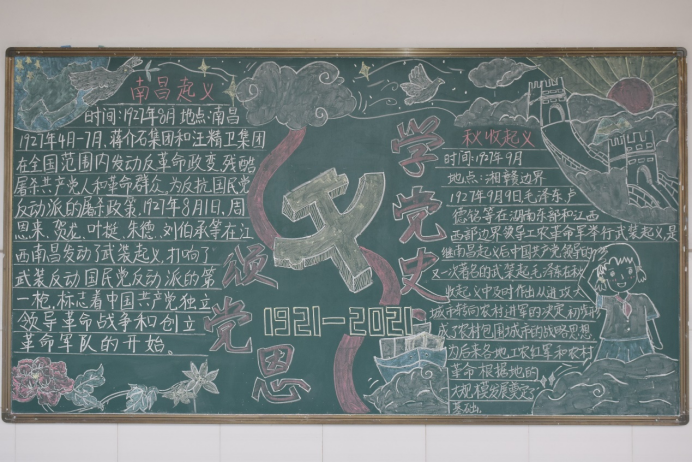 南昌起义
时间:1927年8月 地点:南昌
1927年4月-7月,蒋介石集团和汪精卫集团
在全国范围内发动反革命政变,残酷
屠杀共产党人和革命群众,为反抗国民党
反动派的屠杀政策,1927年8月1日,周
恩来、贺龙、叶挺、朱德、刘伯承等在江
西南昌发动了武装起义,打响了
武装反动国民党反动派的第
一枪,标志着中国共产党独立
领导革命战争和创立
革命军队的开始。
颂党恩
1921-2021
学党史
秋收起义
时间:1927年9月
地点:湘赣边界
1927年9月9日毛泽东、卢
德铭等在湖南东部和江西
西部边界领导工农革命军举行武装起义是
继南昌起义后中国共产党领导的
又一次著名的武装起毛泽东在秋
收起义中及时作出从进攻大
城市转向农村进军的决定初步形
成了农村包围城市的战略思想
为后来各地工农红军和农村
革命根据地的
大规模发展奠定
基础。